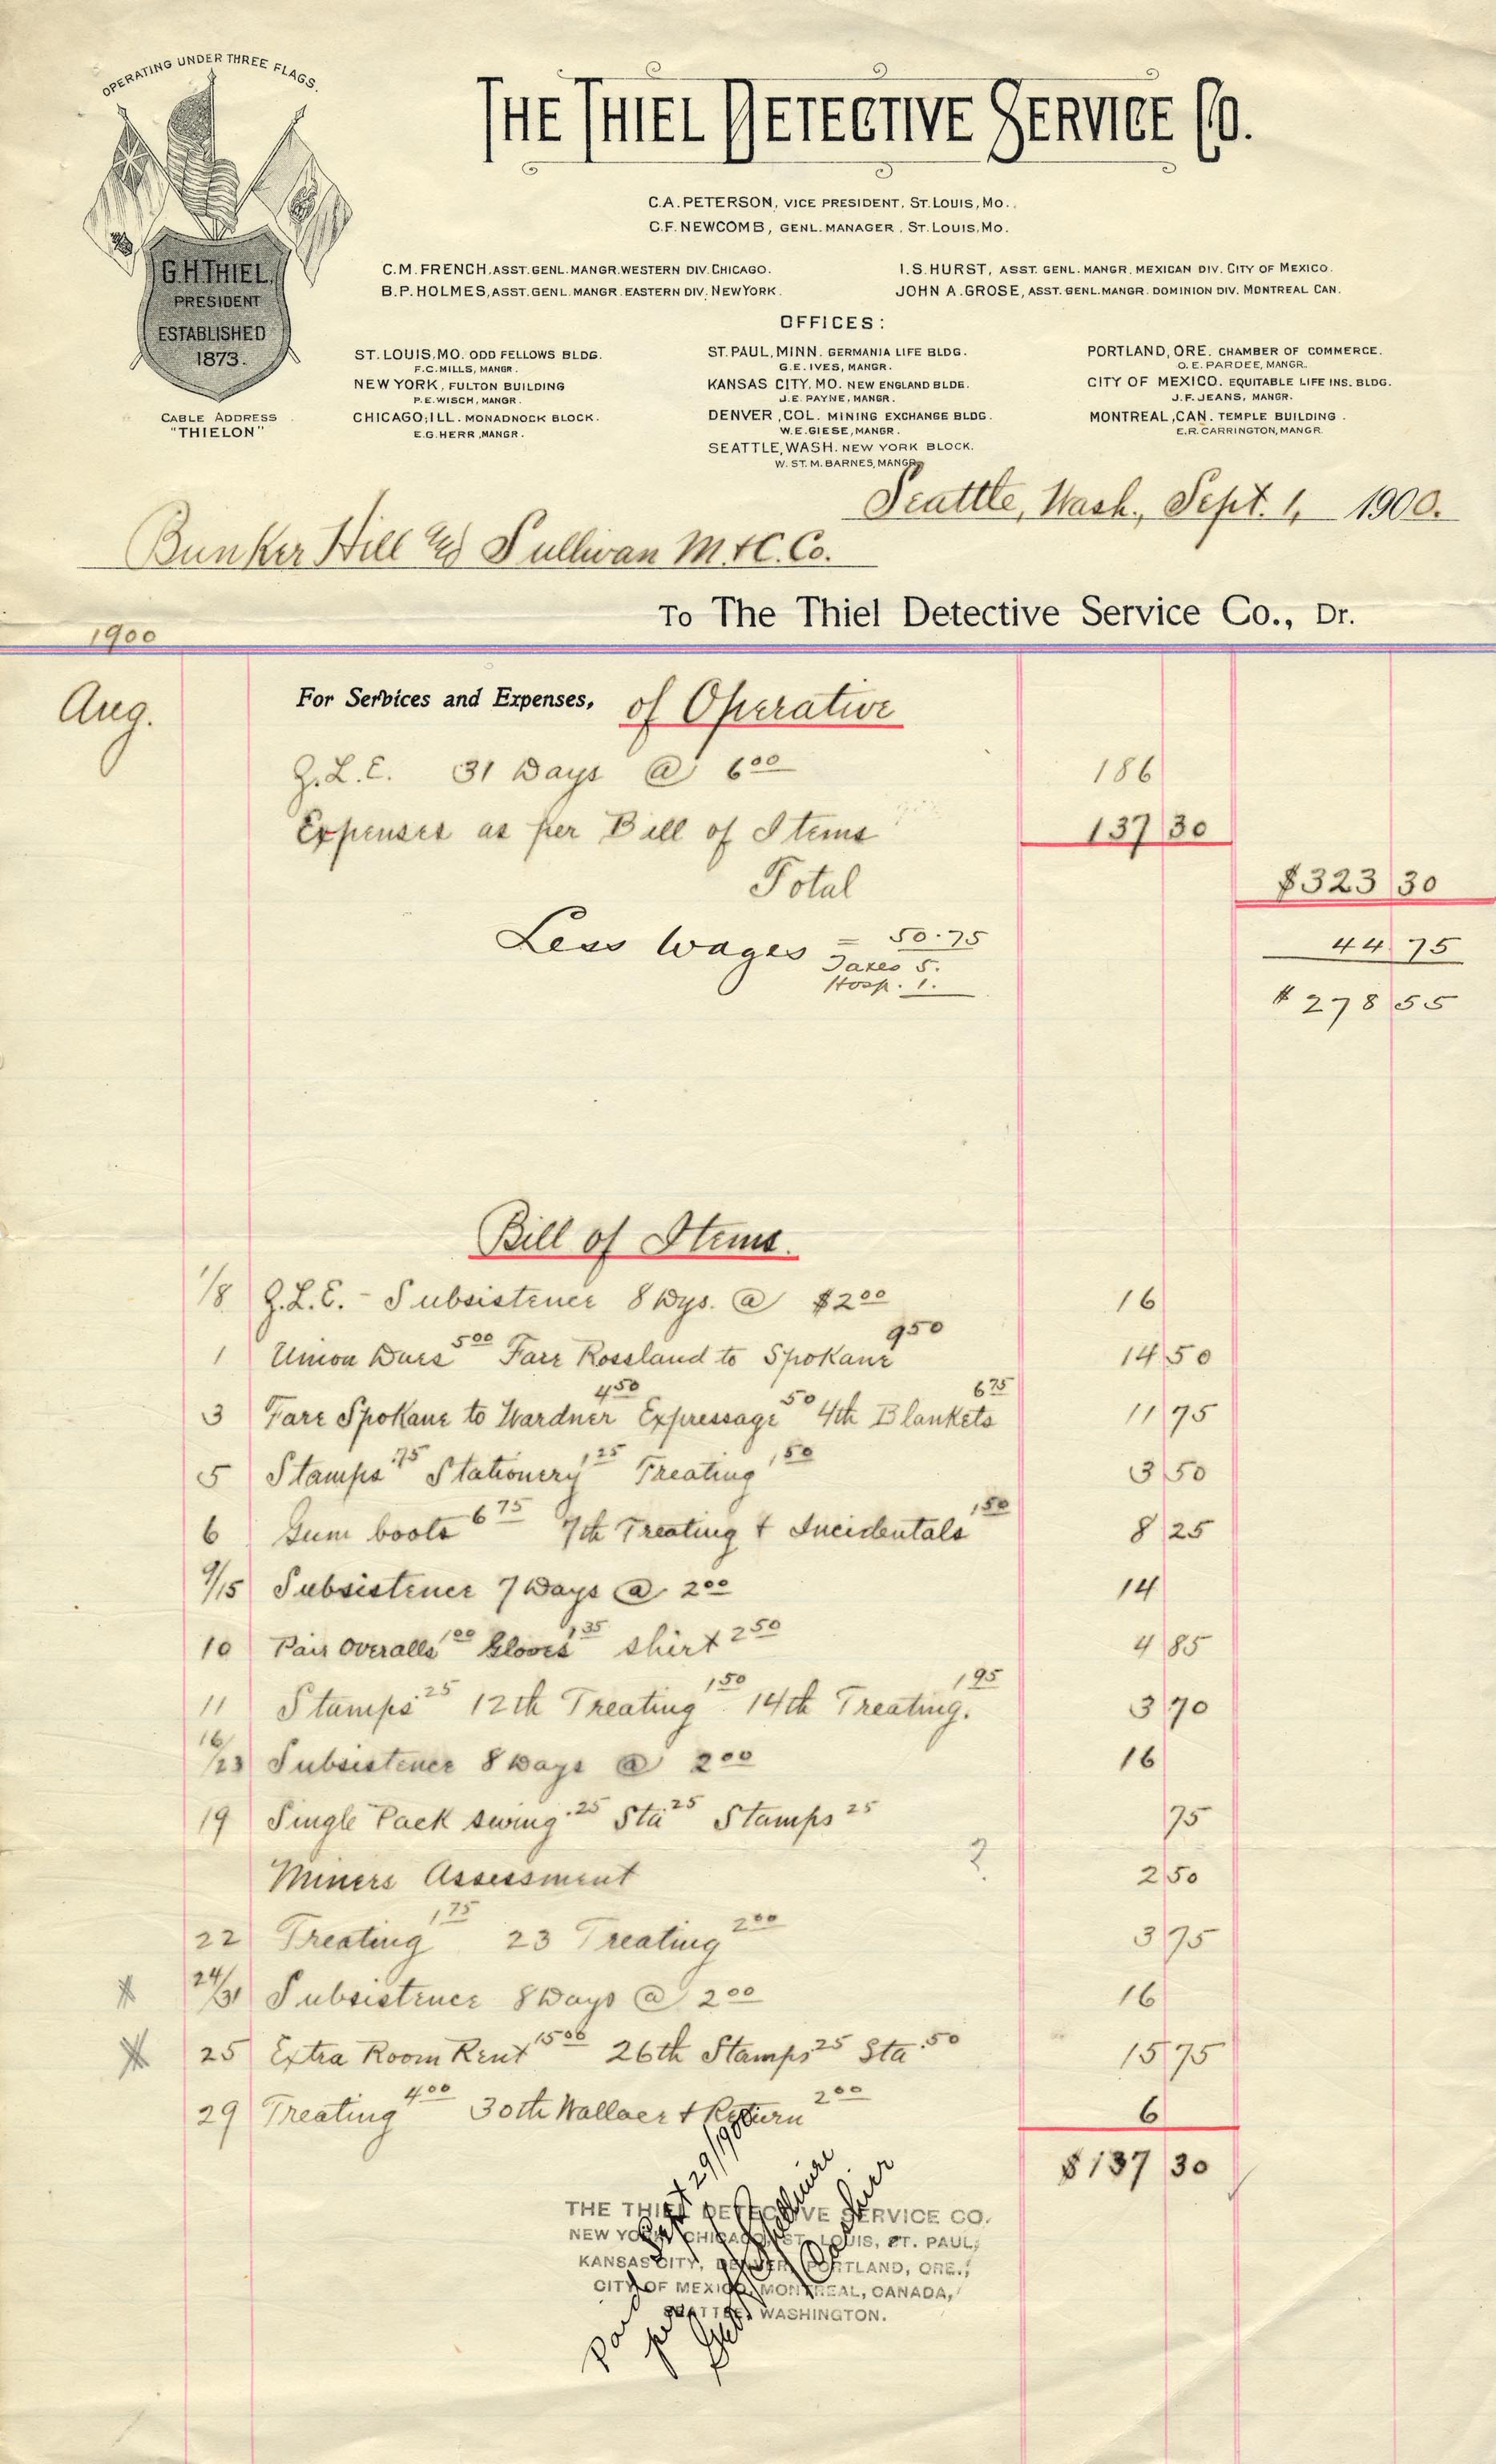 OPERATING UNDER THREE FLAGS.
THE THIEL DETECTIVE SERVICE CO.
C.A. PETERSON, VICE PRESIDENT, ST. LOUIS, MO.
C.F. NEWCOMB, GENL. MANAGER, ST. LOUIS, MO.
G.H. THIEL,
PRESIDENT
ESTABLISHED
1873.
CABLE ADDRESS
"THIELON"
C.M. FRENCH, ASST. GENL. MANGR. WESTERN DIV. CHICAGO.
I.S. HURST, ASST. GENL. MANGR. MEXICAN DIV. CITY OF MEXICO.
B.P. HOLMES, ASST. GENL. MANGR. EASTERN DIV. NEW YORK.
JOHN A. GROSE, ASST. GENL. MANGR. DOMINION DIV. MONTREAL CAN.
OFFICES:
ST. LOUIS, MO. ODD FELLOWS BLDG.
F.C. MILLS, MANGR.
NEW YORK, FULTON BUILDING
P.E. WISCH, MANGR.
CHICAGO, ILL. MONADNOCK BLOCK.
E.G. HERR, MANGR.
ST. PAUL, MINN. GERMANIA LIFE BLDG.
G.E. IVES, MANGR.
KANSAS CITY, MO. NEW ENGLAND BLDG.
J.E. PAYNE, MANGR.
DENVER, COL. MINING EXCHANGE BLDG.
W.E. GIESE, MANGR.
SEATTLE, WASH. NEW YORK BLOCK.
W. ST. M. BARNES, MANGR.
PORTLAND, ORE. CHAMBER OF COMMERCE.
O.E. PARDEE, MANGR.
CITY OF MEXICO. EQUITABLE LIFE INS. BLDG.
J.F. JEANS, MANGR.
MONTREAL, CAN. TEMPLE BUILDING.
E.R. CARRINGTON, MANGR.
Seattle, Wash., Sept. 1, 1900.
Bunker Hill & Sullivan M. & C. Co.
To The Thiel Detective Service Co., Dr.
1900
Aug. For Services and Expenses, of Operative
31 Days @ 6 00 186
Expenses as per Bill of Items 137 30
Total $323 30
Less Wages = 50.75 44 75
Taxes 5.
Hosp. 1.
$ 278 55
Bill of Items.
1/8 Subsistence 8 Dys. @ $2 00 16
1 Union Dues 5 00 Fare Rossland to Spokane 9 50 14 50
3 Fare Spokane to Wardner 4 50 Expressage 50 4th Blankets 6 75 11 75
5 Stamps .75 Stationery 1 25 Treating 1 50 3 50
6 Gum boots 6 75 7th Treating & Incidentals 1 50 8 25
9/15 Subsistence 7 Days @ 2 00 14
10 Pair Overalls 1 00 Gloves 1 35 Shirt 2 50 4 85
11 Stamps 25 12th Treating 1 50 14th Treating. 1 95 3 70
16/23 Subsistence 8 Days @ 2 00 16
19 Single Pack swing .25 Sta 25 Stamps 25 75
Miners Assessment ? 2 50
22 Treating 1 75 23 Treating 2 00 3 75
24/31 Subsistence 8 Days @ 2 00 16
25 Extra Room Rent 15 00 26th Stamps 25 Sta .50 15 75
29 Treating 4 00 30th Wallace & Return 2 00 6
$137 30
THE THIEL DETECTIVE SERVICE CO.
NEW YORK, CHICAGO, ST. LOUIS, ST. PAUL,
KANSAS CITY, DENVER, PORTLAND, ORE.,
CITY OF MEXICO, MONTREAL, CANADA,
SEATTLE, WASHINGTON.
Paid Sept 29/1900
per
Cashier